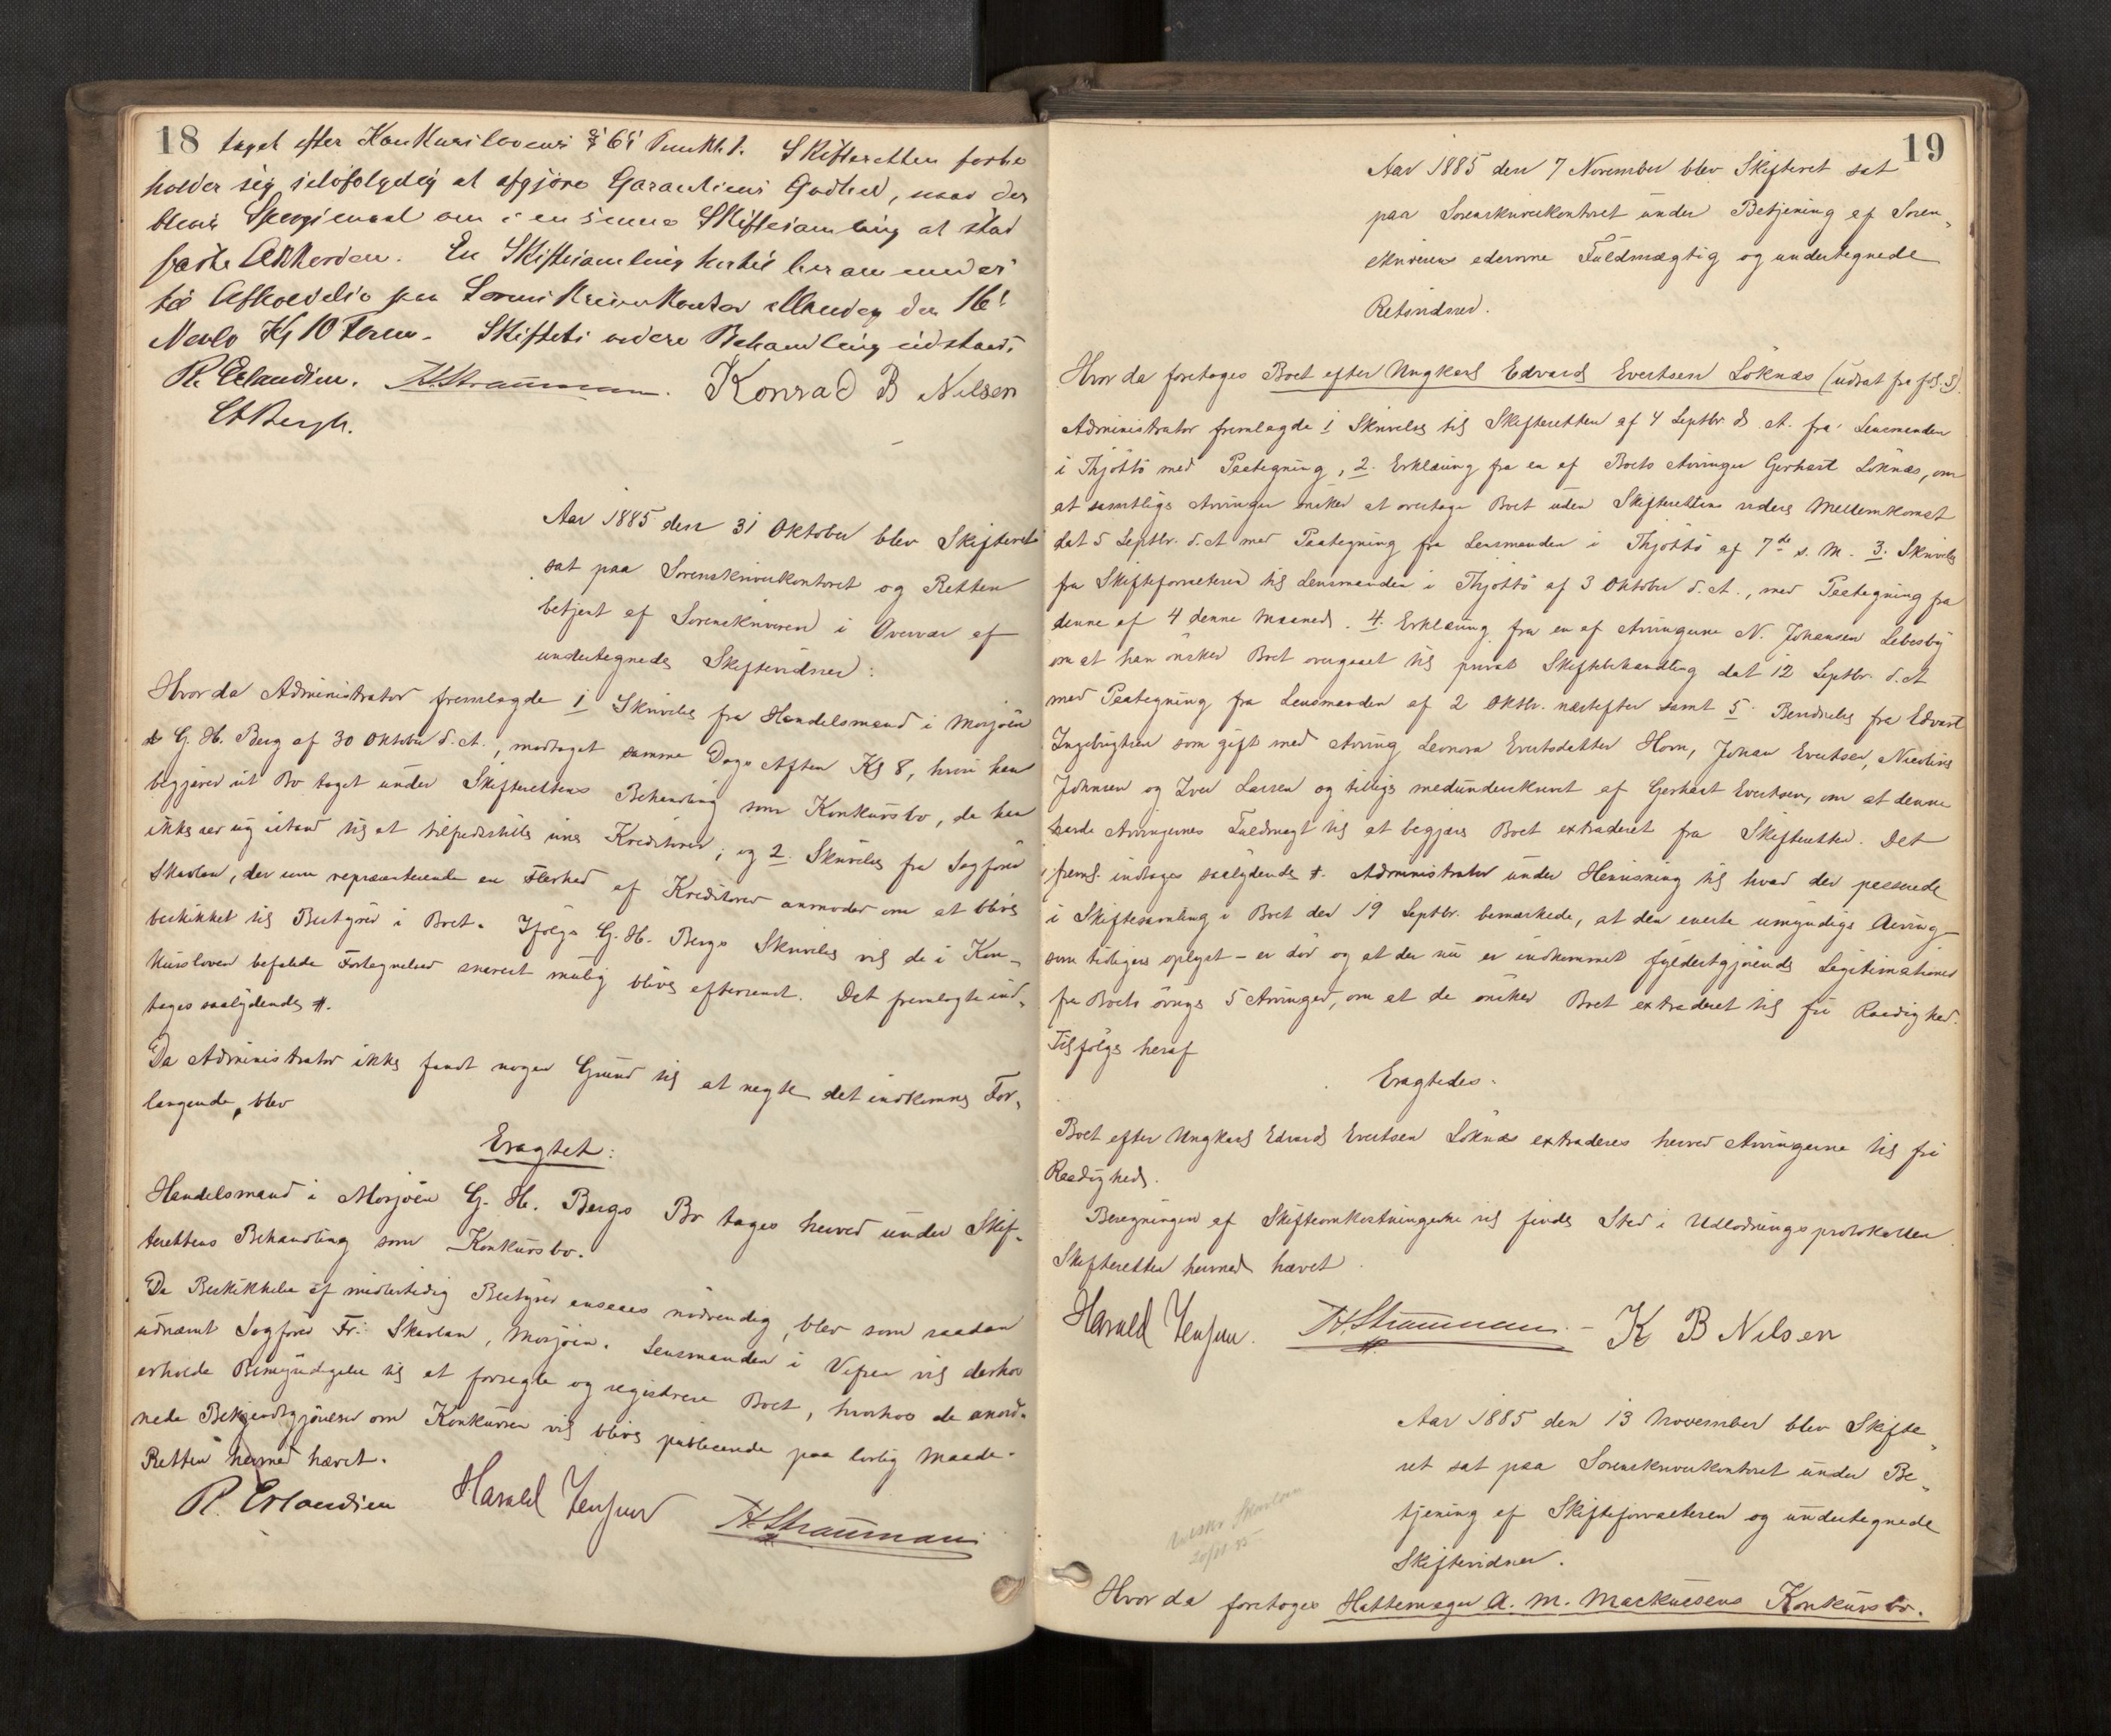 18 taget efter Konkurslovens § 6 Punkt 1. Skifteretten forbe
holder sig selvfølgelig at afgjøre Garantiens Godhed, naar der
blever Spørgsmaal om i en senere Skiftesamling at stad
fæste Akkorden. En Skiftesamling hertil berammedes
til Afholdelse paa Sorenskriverkontor Mandag den 16
Novbr Kl 10 Form. Skiftets videre Behandling udstaar.
R. Erlandsen. H. Straumann. Konrad B Nilsen
Bergh.
Aar 1885 den 31 Oktober blev Skifteret
sat paa Sorenskriverkontoret og Retten
betjent af Sorenskriveren i Overvær af
undertegnede Skiftevidner:
Hvor da Administrator fremlagde 1 Skrivelse fra Handelsmand i Mosjøen
G. H. Berg af 30 Oktober d. A., modtaget samme Dags Aften Kl 8, hvori han
begjærer sit Bo taget under Skifterettens Behandling som Konkursbo, da han
ikke ser sig istand til at tilfredsstille sine Kreditorer; og 2. Skrivelse fra Sagfører
Skavlan, der som repræsenterende en Flerhed af Kreditorer anmoder om at blive
beskikket til Bestyrer i Boet. Ifølge G. H. Bergs Skrivelse vil de i Kon-
kursloven befalede Fortegnelser snarest mulig blive eftersendt. Det fremlagte ind,
tages saalydende #.
Da Administrator ikke fandt nogen Grund til at negte det indkomne For,
langende, blev
Eragtet:
Handelsmand i Mosjøen G. H. Bergs Bo tages herved under Skif-
terettens Behandling som Konkursbo.
Da Beskikkelse af midlertidig Bestyrer ansees nødvendig, blev som saadan
udnævnt Sagfører Fr: Skavlan, Mosjøen. Lensmanden i Vefsen vil derhos
erholde Bemyndigelse til at forsegle og registrere Boet, hvorhos de anord-
nede Bekjendtgjørelser om Konkursen vil blive publicerede paa lovlig Maade.
Retten hermed hævet.
R. Erlandsen Harald Jensen H. Straumann
19
Aar 1885 den 7 November blev Skifteret sat
paa Sorenskriverkontoret under Betjening af Soren,
skriverens edsvorne Fuldmægtig og undertegnede
Retsvidner.
Hvor da foretoges Boet efter Ungkarl Edvard Evertsen Løknæs (udsat fra fol. 5).
Administrator fremlagde 1 Skrivelse til Skifteretten af 4 Septbr. d. A. fra Lensmanden
i Thjøttø med Paategning, 2. Erklæring fra en af Boets Arvinger Gerhart Løknæs, om
at samtlige Arvinger ønsker at overtage Boet uden Skifterettens videre Mellemkomst
dat 5 Septbr. d. A med Paategning fra Lensmanden i Thjøttø af 7de s. M. 3. Skrivelse
fra Skifteforvalteren til Lensmanden i Thjøttø af 3 Oktober d. A., med Paategning fra
denne af 4 denne Maaned. 4. Erklæring fra en af Arvingerne N. Johansen Lebesby
om at han ønsker Boet overgaaet til privat Skiftebehandling dat 12 Septbr. d. A
med Paategning fra Lensmanden af 2 Oktbr. næstefter samt 5. Bevidnelse fra Edvart
Ingebrigtsen som gift med Arving Leonora Evertsdatter Horn, Johan Evertsen, Nicoline
Johnsen og Iver Larsen og tillige medunderskrevet af Gerhart Evertsen, om at denne
havde Arvingernes Fuldmagt til at begjære Boet extraderet fra Skifteretten. Det
freml. indtages saalydende #. Administrator under Henvisning til hvad der passerede
i Skiftesamling i Boet den 19 Septbr. bemærkede, at den eneste umyndige Arving
som tidligere oplyst – er død og at der nu er indkommet fyldestgjørende Legitimationer
fra Boets øvrige 5 Arvinger, om at de ønsker Boet extraderet til fri Raadighed.
Tilfølge heraf
Eragtedes.
Boet efter Ungkarl Edvard Evertsen Løknæs extraderes herved Arvingerne til fri
Raadighed.
Beregningen af Skifteomkostningerne vil finde Sted i Udlodningsprotokollen
Skifteretten hermed hævet.
Harald Jensen. H. Straumann. – K B Nilsen
Aar 1885 den 13 November blev Skifte,
ret sat paa Sorenskriverkontoret under Be,
tjening af Skifteforvalteren og undertegnede
Skiftevidner.
Hvor da foretoges Hattemager A. M. Markussens Konkursbo.